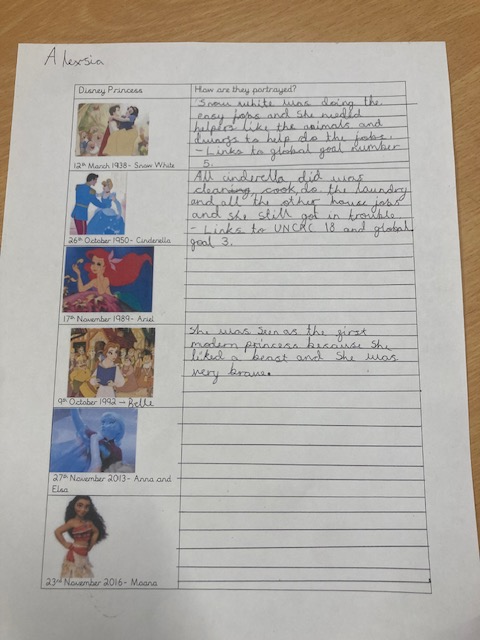 Alexsia
Disney Princess
How are they portrayed?
Snow white was doing the
easy jobs and she needed
helpers like the animals and
dwarfs to help do the jobs.
- Links to global goal number
5.
12th March 1938- Snow White
All cinderella did was
cleaning, cook, do the laundry
and all the other house jobs
and she still got in trouble.
- Links to UNCRC 18 and global
goal 3.
26th October 1950- Cinderella
17th November 1989- Ariel
She was seen as the first
modern princess because she
liked a beast and she was
very brave.
9th October 1992 - Belle
27th November 2013- Anna and
Elsa
23rd November 2016- Moana